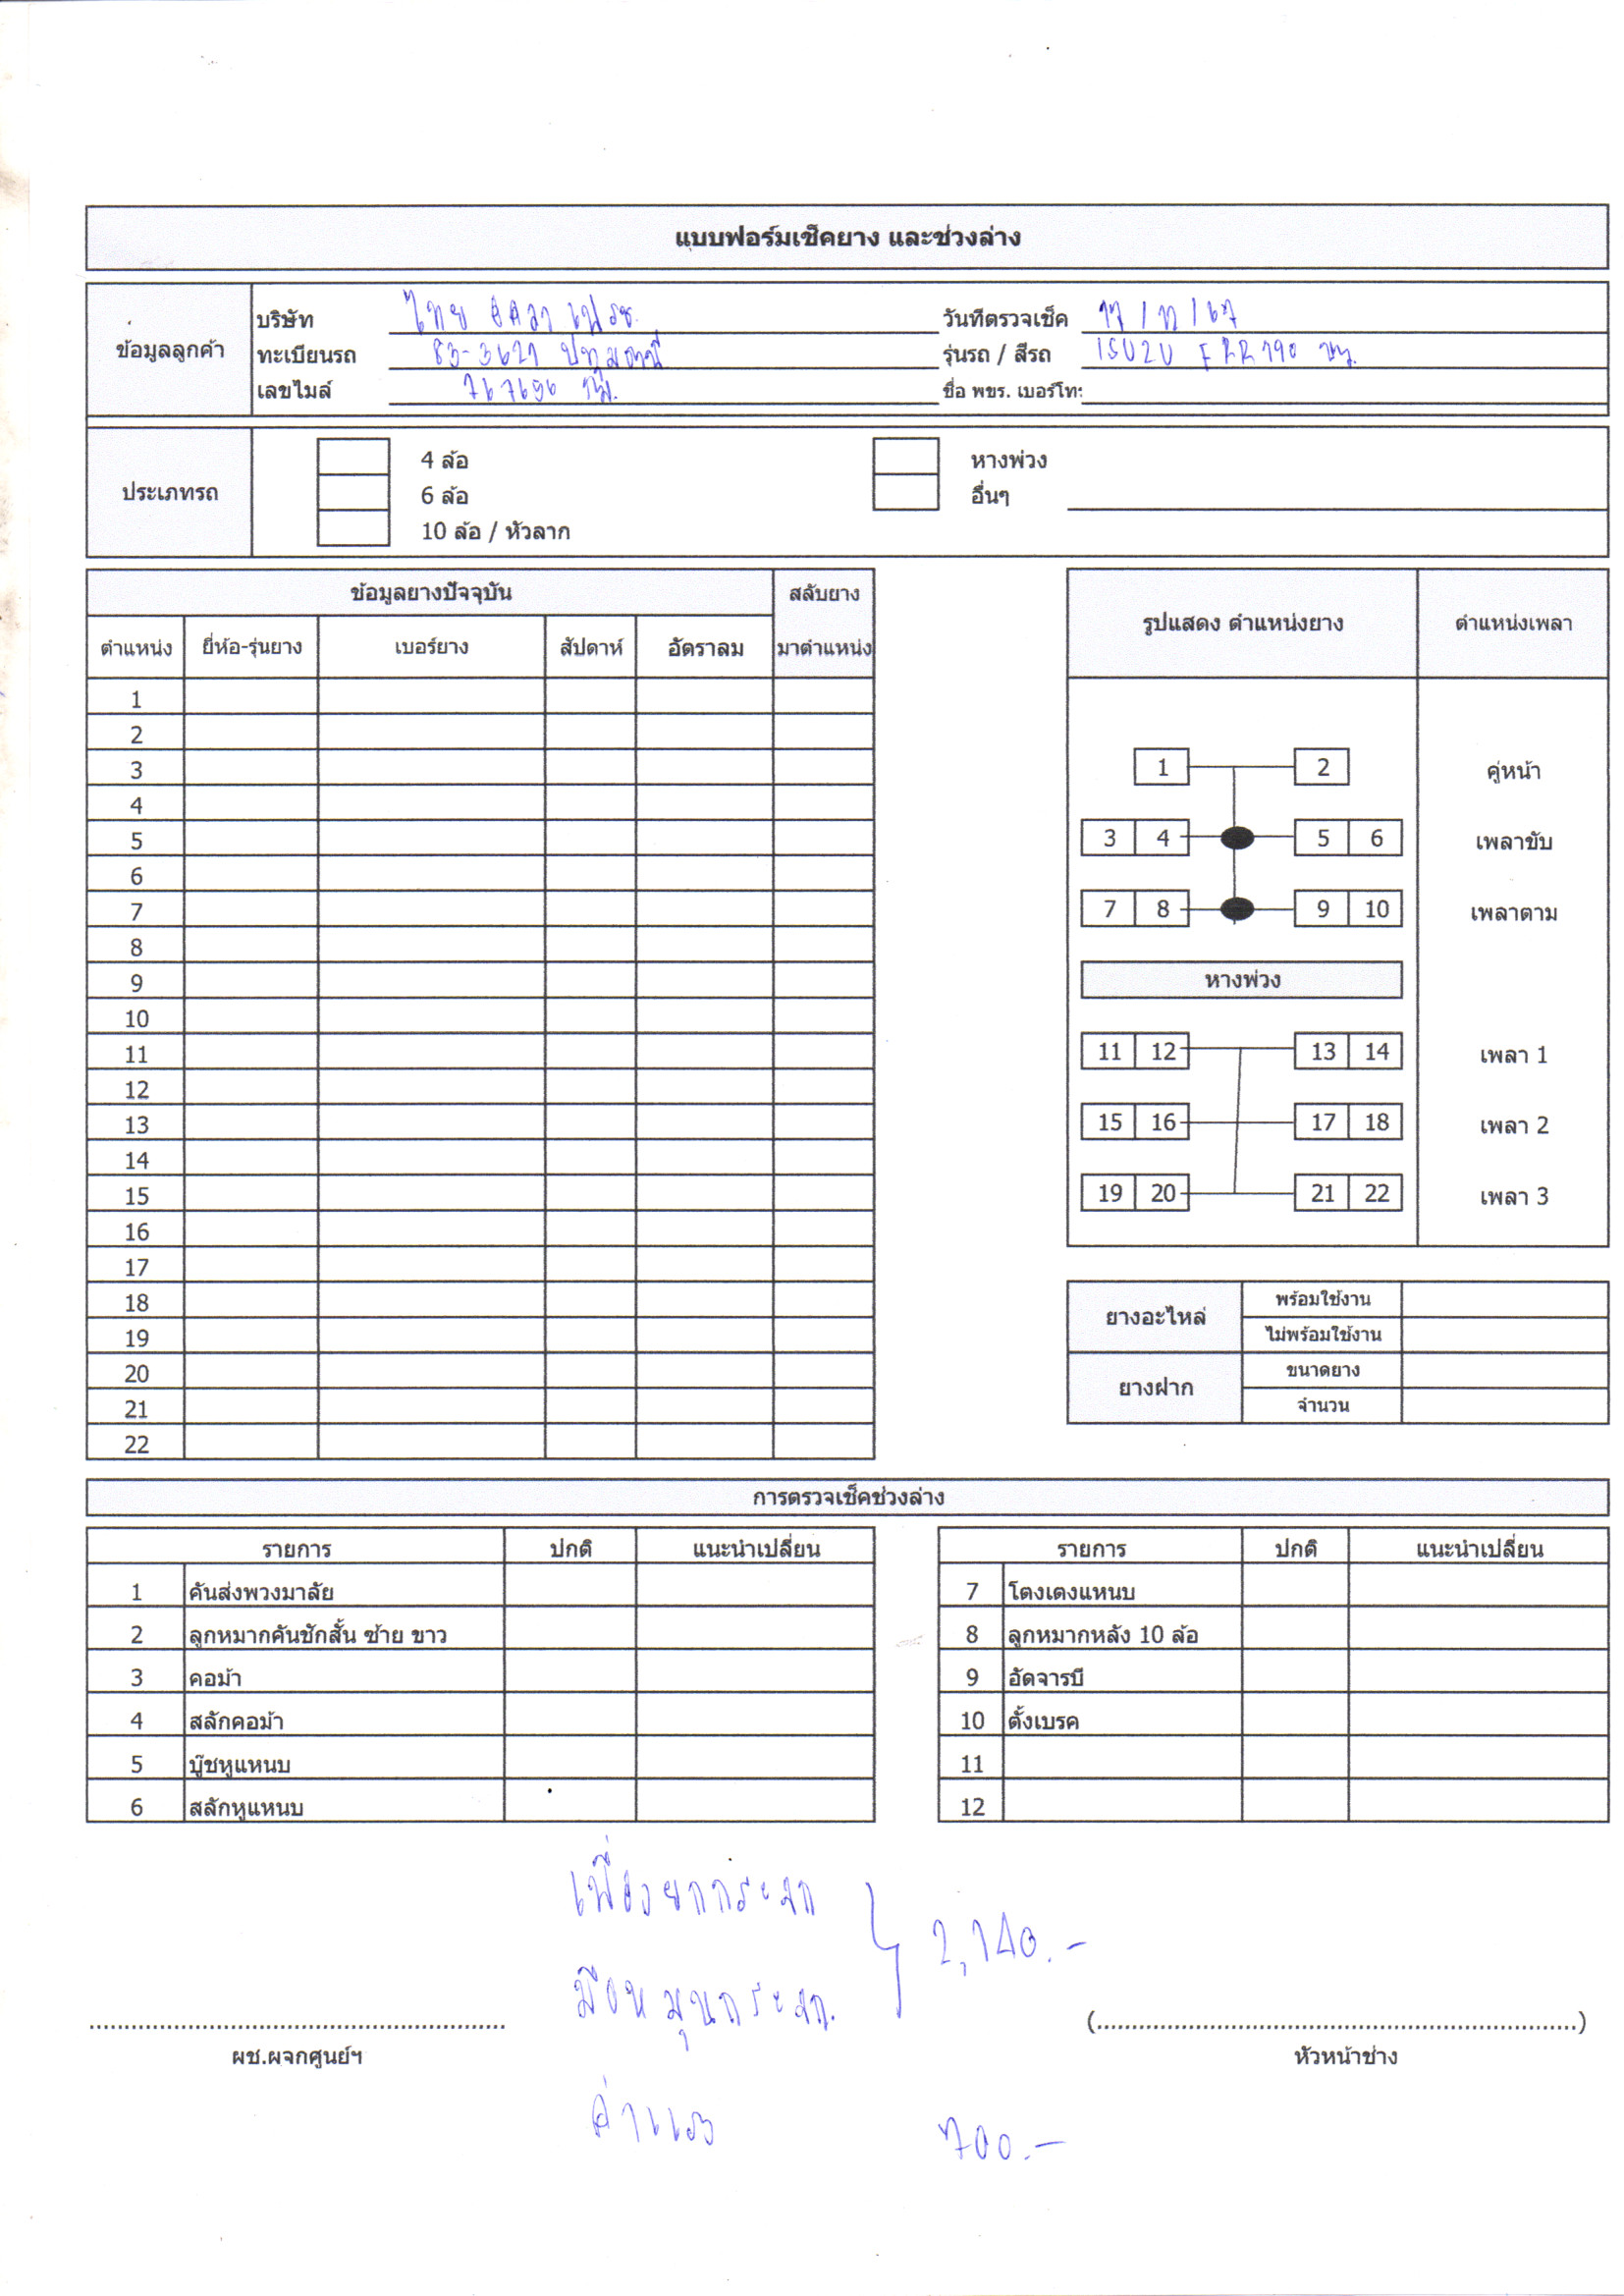 แบบฟอร์มเช็คยาง และช่วงล่าง
ข้อมูลลูกค้า
บริษัท ไทย
วันที่ตรวจเช็ค
ทะเบียนรถ 83-3621 ปทุมธานี
รุ่นรถ / สีรถ ISUZU FRR190
เลขไมล์ 767696 กม.
ชื่อ พขร. เบอร์โทร
ประเภทรถ
4 ล้อ
หางพ่วง
6 ล้อ
อื่นๆ
10 ล้อ / หัวลาก
ข้อมูลยางปัจจุบัน สลับยาง
ตำแหน่ง ยี่ห้อ-รุ่นยาง เบอร์ยาง สัปดาห์ อัตราลม มาตำแหน่ง
1
2
3
4
5
6
7
8
9
10
11
12
13
14
15
16
17
18
19
20
21
22
รูปแสดง ตำแหน่งยาง ตำแหน่งเพลา
1 2 คู่หน้า
3 4 5 6 เพลาขับ
7 8 9 10 เพลาตาม
หางพ่วง
11 12 13 14 เพลา 1
15 16 17 18 เพลา 2
19 20 21 22 เพลา 3
ยางอะไหล่ พร้อมใช้งาน
ไม่พร้อมใช้งาน
ยางฝาก ขนาดยาง
จำนวน
การตรวจเช็คช่วงล่าง
รายการ ปกติ แนะนำเปลี่ยน
1 คันส่งพวงมาลัย
2 ลูกหมากคันชักสั้น ซ้าย ขาว
3 คอม้า
4 สลักคอม้า
5 บู๊ชหูแหนบ
6 สลักหูแหนบ
รายการ ปกติ แนะนำเปลี่ยน
7 โตงเตงแหนบ
8 ลูกหมากหลัง 10 ล้อ
9 อัดจารบี
10 ตั้งเบรค
11
12
เฟืองยกกระจก
2,140.-
มือหมุนกระจก.
ผช.ผจกศูนย์ฯ
(..........)
หัวหน้าช่าง
ค่าแรง 700.-